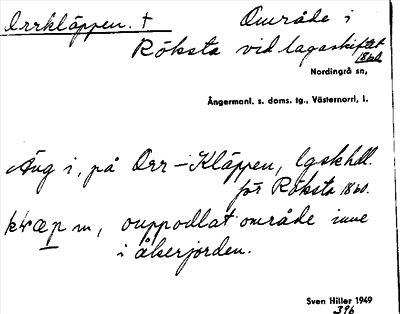 Orrkläppen. † Område i
Röksta vid lagaskiftet
1860.
Nordingrå sn,
Ångermanl. s. doms. tg., Västernorrl, l.
Äng i, på Orr-Kläppen, lgskhdl.
för Röksta 1860.
m, ouppodlat område inne
i åkerjorden.
Sven Hiller 1949
396